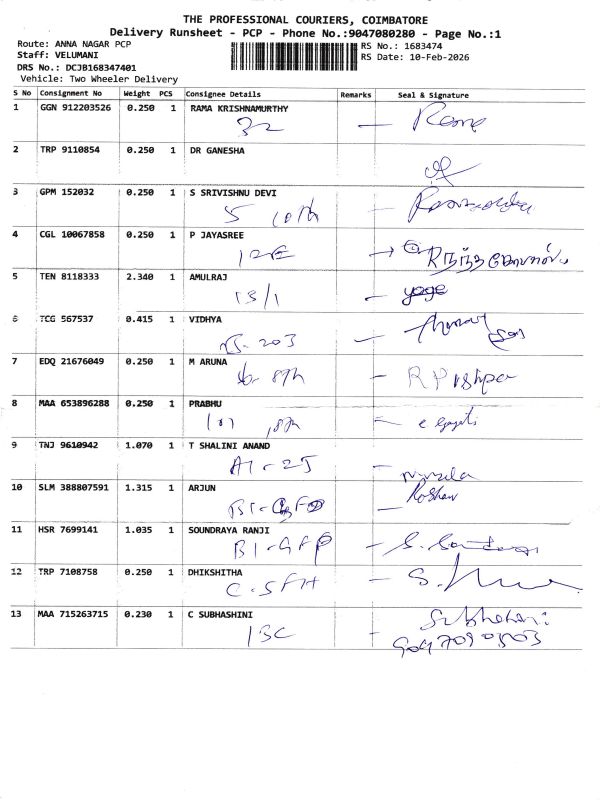 THE PROFESSIONAL COURIERS, COIMBATORE
Delivery Runsheet - PCP - Phone No.:9047080280 - Page No.:1
Route: ANNA NAGAR PCP
Staff: VELUMANI
DRS No.: DCJB168347401
Vehicle: Two Wheeler Delivery
RS No.: 1683474
RS Date: 10-Feb-2026
S No Consignment No Weight PCS Consignee Details Remarks Seal & Signature
1 GGN 912203526 0.250 1 RAMA KRISHNAMURTHY
32 — Rama
2 TRP 9110854 0.250 1 DR GANESHA
3 GPM 152032 0.250 1 S SRIVISHNU DEVI
5 10th —
4 CGL 10067858 0.250 1 P JAYASREE
12E →
5 TEN 8118333 2.340 1 AMULRAJ
13/1 — yoge
6 TCG 567537 0.415 1 VIDHYA
203 —
7 EDQ 21676049 0.250 1 M ARUNA
8th — R Pushpa
8 MAA 653896288 0.250 1 PRABHU
101 —
9 TNJ 9610942 1.070 1 T SHALINI ANAND
A1-25 —
10 SLM 388807591 1.315 1 ARJUN
B1- — Roshan
11 HSR 7699141 1.035 1 SOUNDRAYA RANJI
B1-GFP — S.
12 TRP 7108758 0.250 1 DHIKSHITHA
C-5FH — S.
13 MAA 715263715 0.230 1 C SUBHASHINI
13C — Subhashini